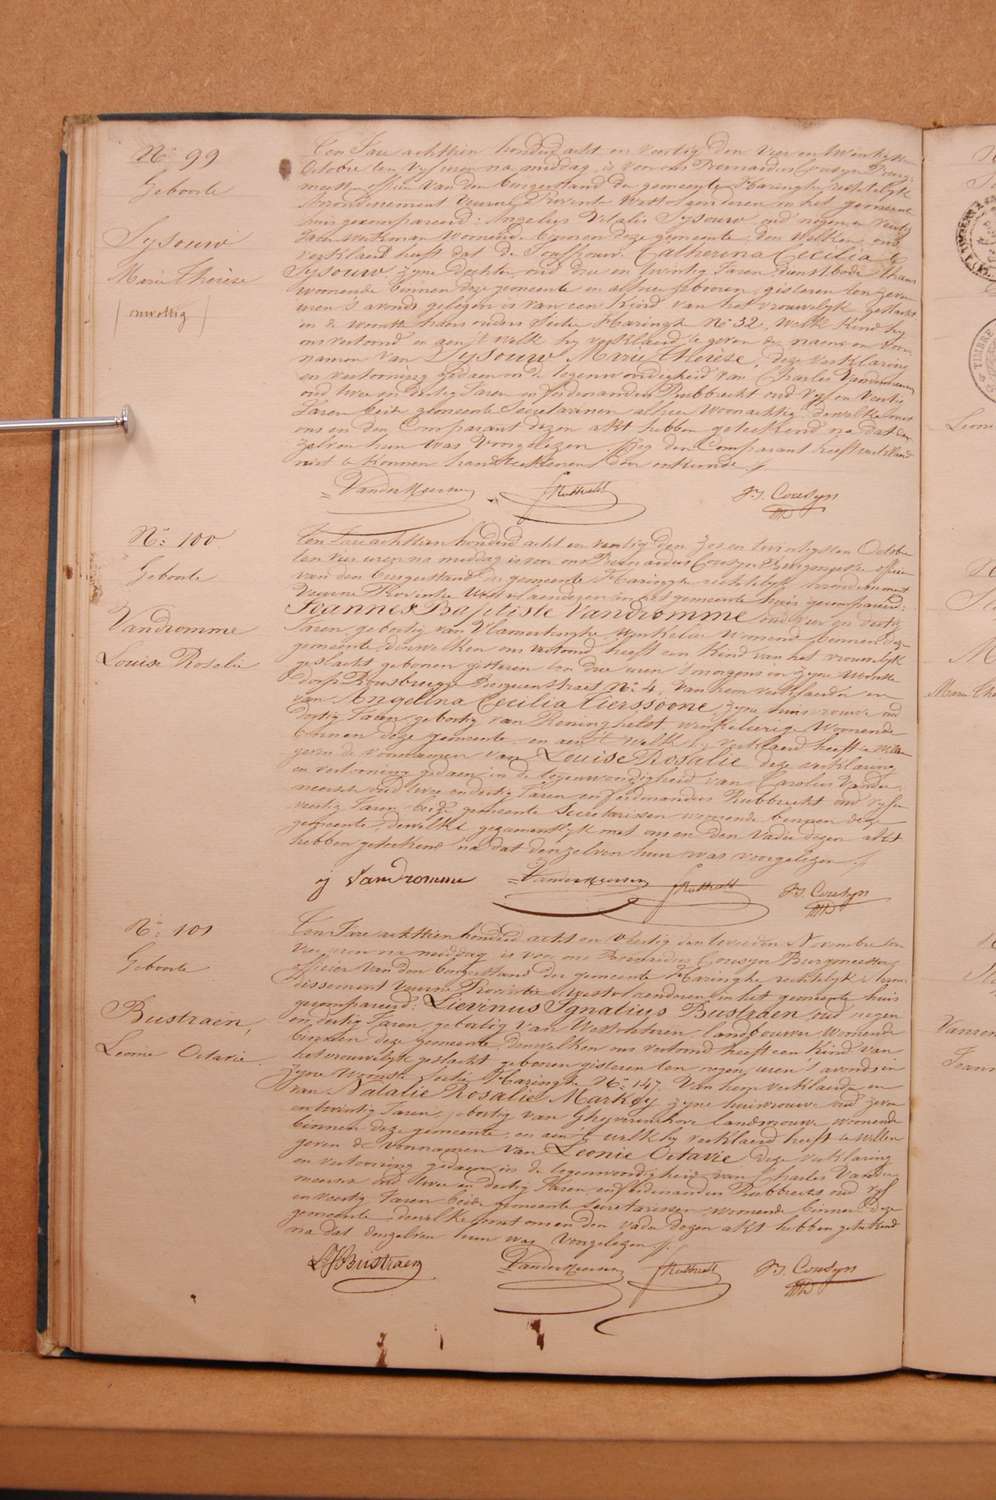 N.º 99
Geboorte
Sysouw
Marie Thérèse
onwettig
Ten Jare achttien honderd acht en veertig den vier en twintigsten
October ten vyf uren na middag is voor ons Bernardus Cousyn Burge-
meester officier van den burgerstand der gemeente Haringhe rechterlyk
Arrondissement Veurne Provintie Westvlaenderen in het gemeente
huis gecompareerd: Angelus Vitalis Sysouw oud negen en
Jaren werkman wonende binnen deze gemeente, den welken ons
verklaerd heeft dat de Jouffrouw Catherina Cecilia
Sysouw zyne dochter, oud drie en twintig Jaren, dienstbode
wonende binnen deze gemeente en alhier geboren, gisteren ten zeven
uren 's avonds gelegen is van een kind van het vrouwelyk geslacht
in de woonste sectie Haringhe N.º 32, welk kind hy
ons vertoond en aen 't welk hy verklaerd te geven de naem en voor-
namen van Sysouw Marie Thérèse, deze verklaring
en vertooning gedaen in de tegenwoordigheid van Charles Vandermeersch
oud twee en dertig Jaren en ferdinandus Rubbrecht oud vyf en veertig
Jaren beide gemeente Secretarissen alhier woonachtig dewelke met
ons en den Comparant dezen akt hebben geteekend na dat
zelven hun was voorgelezen den Comparant heeft verklaerd
niet te konnen handteekenen
Vandermeersch Rubbrecht B. Cousyn
N.º 100
Geboorte
Vandromme
Louise Rosalie
Ten Jare achttien honderd acht en veertig den zes en twintigsten October
ten vier uren na middag is voor ons Bernardus Cousyn Burgemeester officier
van den burgerstand der gemeente Haringhe rechterlyk arrondissement
Veurne Provintie Westvlaenderen in het gemeente huis gecompareerd:
Joannes Baptiste Vandromme oud vier en veertig
Jaren geboortig van Vlamertinghe Wynkelier wonend binnen deze
gemeente denwelken ons vertoond heeft een kind van het vrouwelyk
geslacht geboren gisteren ten drie uren 's morgens in zyne woonste
dorp Rousbrugge Bergenstraet N.º 4, van hem verklaerder en
van Angelina Cecilia Tierssoone zyne huisvrouwe oud
dertig Jaren geboortig van Reninghelst winkelierige wonende
binnen deze gemeente, en aen 't welk hy verklaerd heeft te willen
geven de voornamen van Louise Rosalie, deze verklaring
en vertooning gedaen in de tegenwoordigheid van Carolus Vander-
meersch oud twee en dertig Jaren en ferdinandus Rubbrecht oud vyf en
veertig Jaren beide gemeente Secretarissen wonende binnen deze
gemeente, dewelke gezamentlyk met ons en den Vader dezen akt
hebben geteekend na dat denzelven hun was voorgelezen
Vandromme Vandermeersch Rubbrecht B. Cousyn
N.º 101
Geboorte
Bustraen,
Leonie Octavie
Ten Jare achttien honderd acht en veertig den tweeden November ten
vier uren na middag is voor ons Bernardus Cousyn Burgemeester
officier van den burgerstand der gemeente Haringhe rechterlyk Arron-
dissement Veurne Provintie Westvlaenderen in het gemeente huis
gecompareerd: Lievinus Ignatius Bustraen oud negen
en dertig Jaren geboortig van Westvleteren, landbouwer wonende
binnen deze gemeente, denwelken ons vertoond heeft een kind van
het vrouwelyk geslacht geboren gisteren ten negen uren 's avonds in
zyne woonste sectie Haringhe N.º 147 van hem verklaerder en
van Natalie Rosalie Markey zyne huisvrouwe oud zeven
en twintig Jaren, geboortig van Ghyverinchove landvrouwe wonende
binnen deze gemeente, en aen 't welk hy verklaerd heeft te willen
geven de voornamen van Leonie Octavie, deze verklaring
en vertooning gedaen in de tegenwoordigheid van Charles Vander-
meersch oud twee en dertig Jaren en ferdinandus Rubbrecht oud vyf
en veertig Jaren beide gemeente Secretarissen wonende binnen deze
gemeente dewelke met ons en den vader dezen akt hebben geteekend
na dat denzelven hun was voorgelezen
L J Bustraen Vandermeersch Rubbrecht B. Cousyn